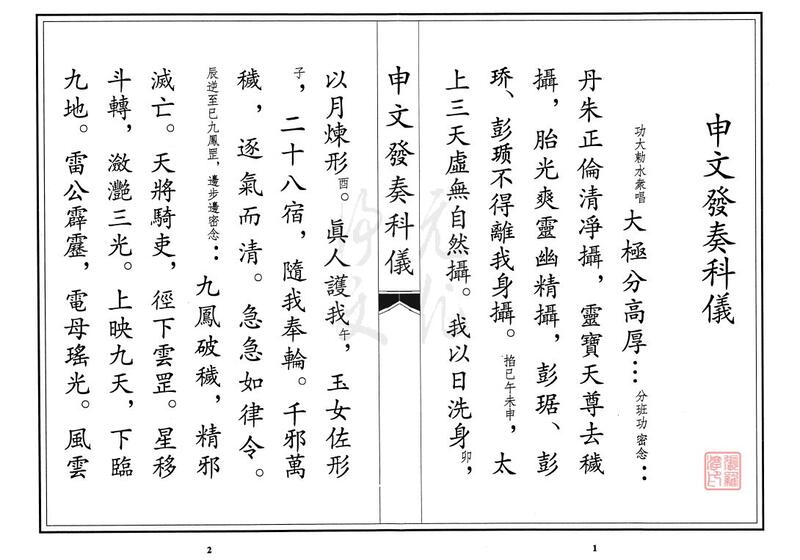 申文發奏科儀
功大勅水衆唱 大極分高厚⋯分班功密念：
丹朱正倫清凈攝，靈寶天尊去穢
攝，胎光爽靈幽精攝，彭琚、彭
、彭不得離我身攝。掐巳午未申，太
上三天虛無自然攝。我以日洗身卯，
申文發奏科儀
以月煉形酉。眞人護我午，玉女佐形
子，二十八宿，隨我奉輪。千邪萬
穢，逐氣而清。急急如律令。
辰逆至巳九鳳罡，邊步邊密念：九鳳破穢，精邪
滅亡。天將騎吏，徑下雲罡。星移
斗轉，瀲灩三光。上映九天，下臨
九地。雷公霹靂，電母瑤光。風雲
1
2